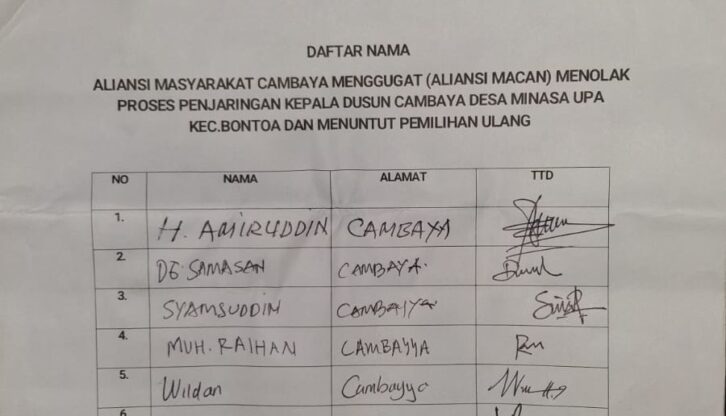 DAFTAR NAMA
ALIANSI MASYARAKAT CAMBAYA MENGGUGAT (ALIANSI MACAN) MENOLAK
PROSES PENJARINGAN KEPALA DUSUN CAMBAYA DESA MINASA UPA
KEC.BONTOA DAN MENUNTUT PEMILIHAN ULANG
NO NAMA ALAMAT TTD
1. H. AMIRUDDIN CAMBAYA
2. DG. SAMASAN CAMBAYA.
3. SYAMSUDDIN CAMBAIYA
4. MUH. RAIHAN CAMBAYYA
5. Wildan Cambayya
6